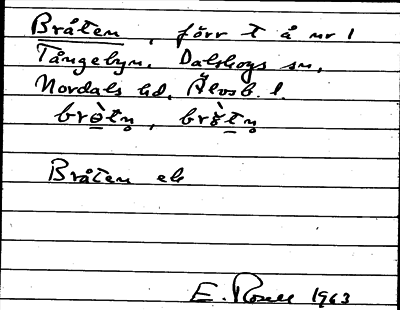 Bråten, förr t å nr 1
Tångebyn. Dalskogs sn,
Nordals hd. Älvsb. l.
Bråten ek
E. Rosell 1963